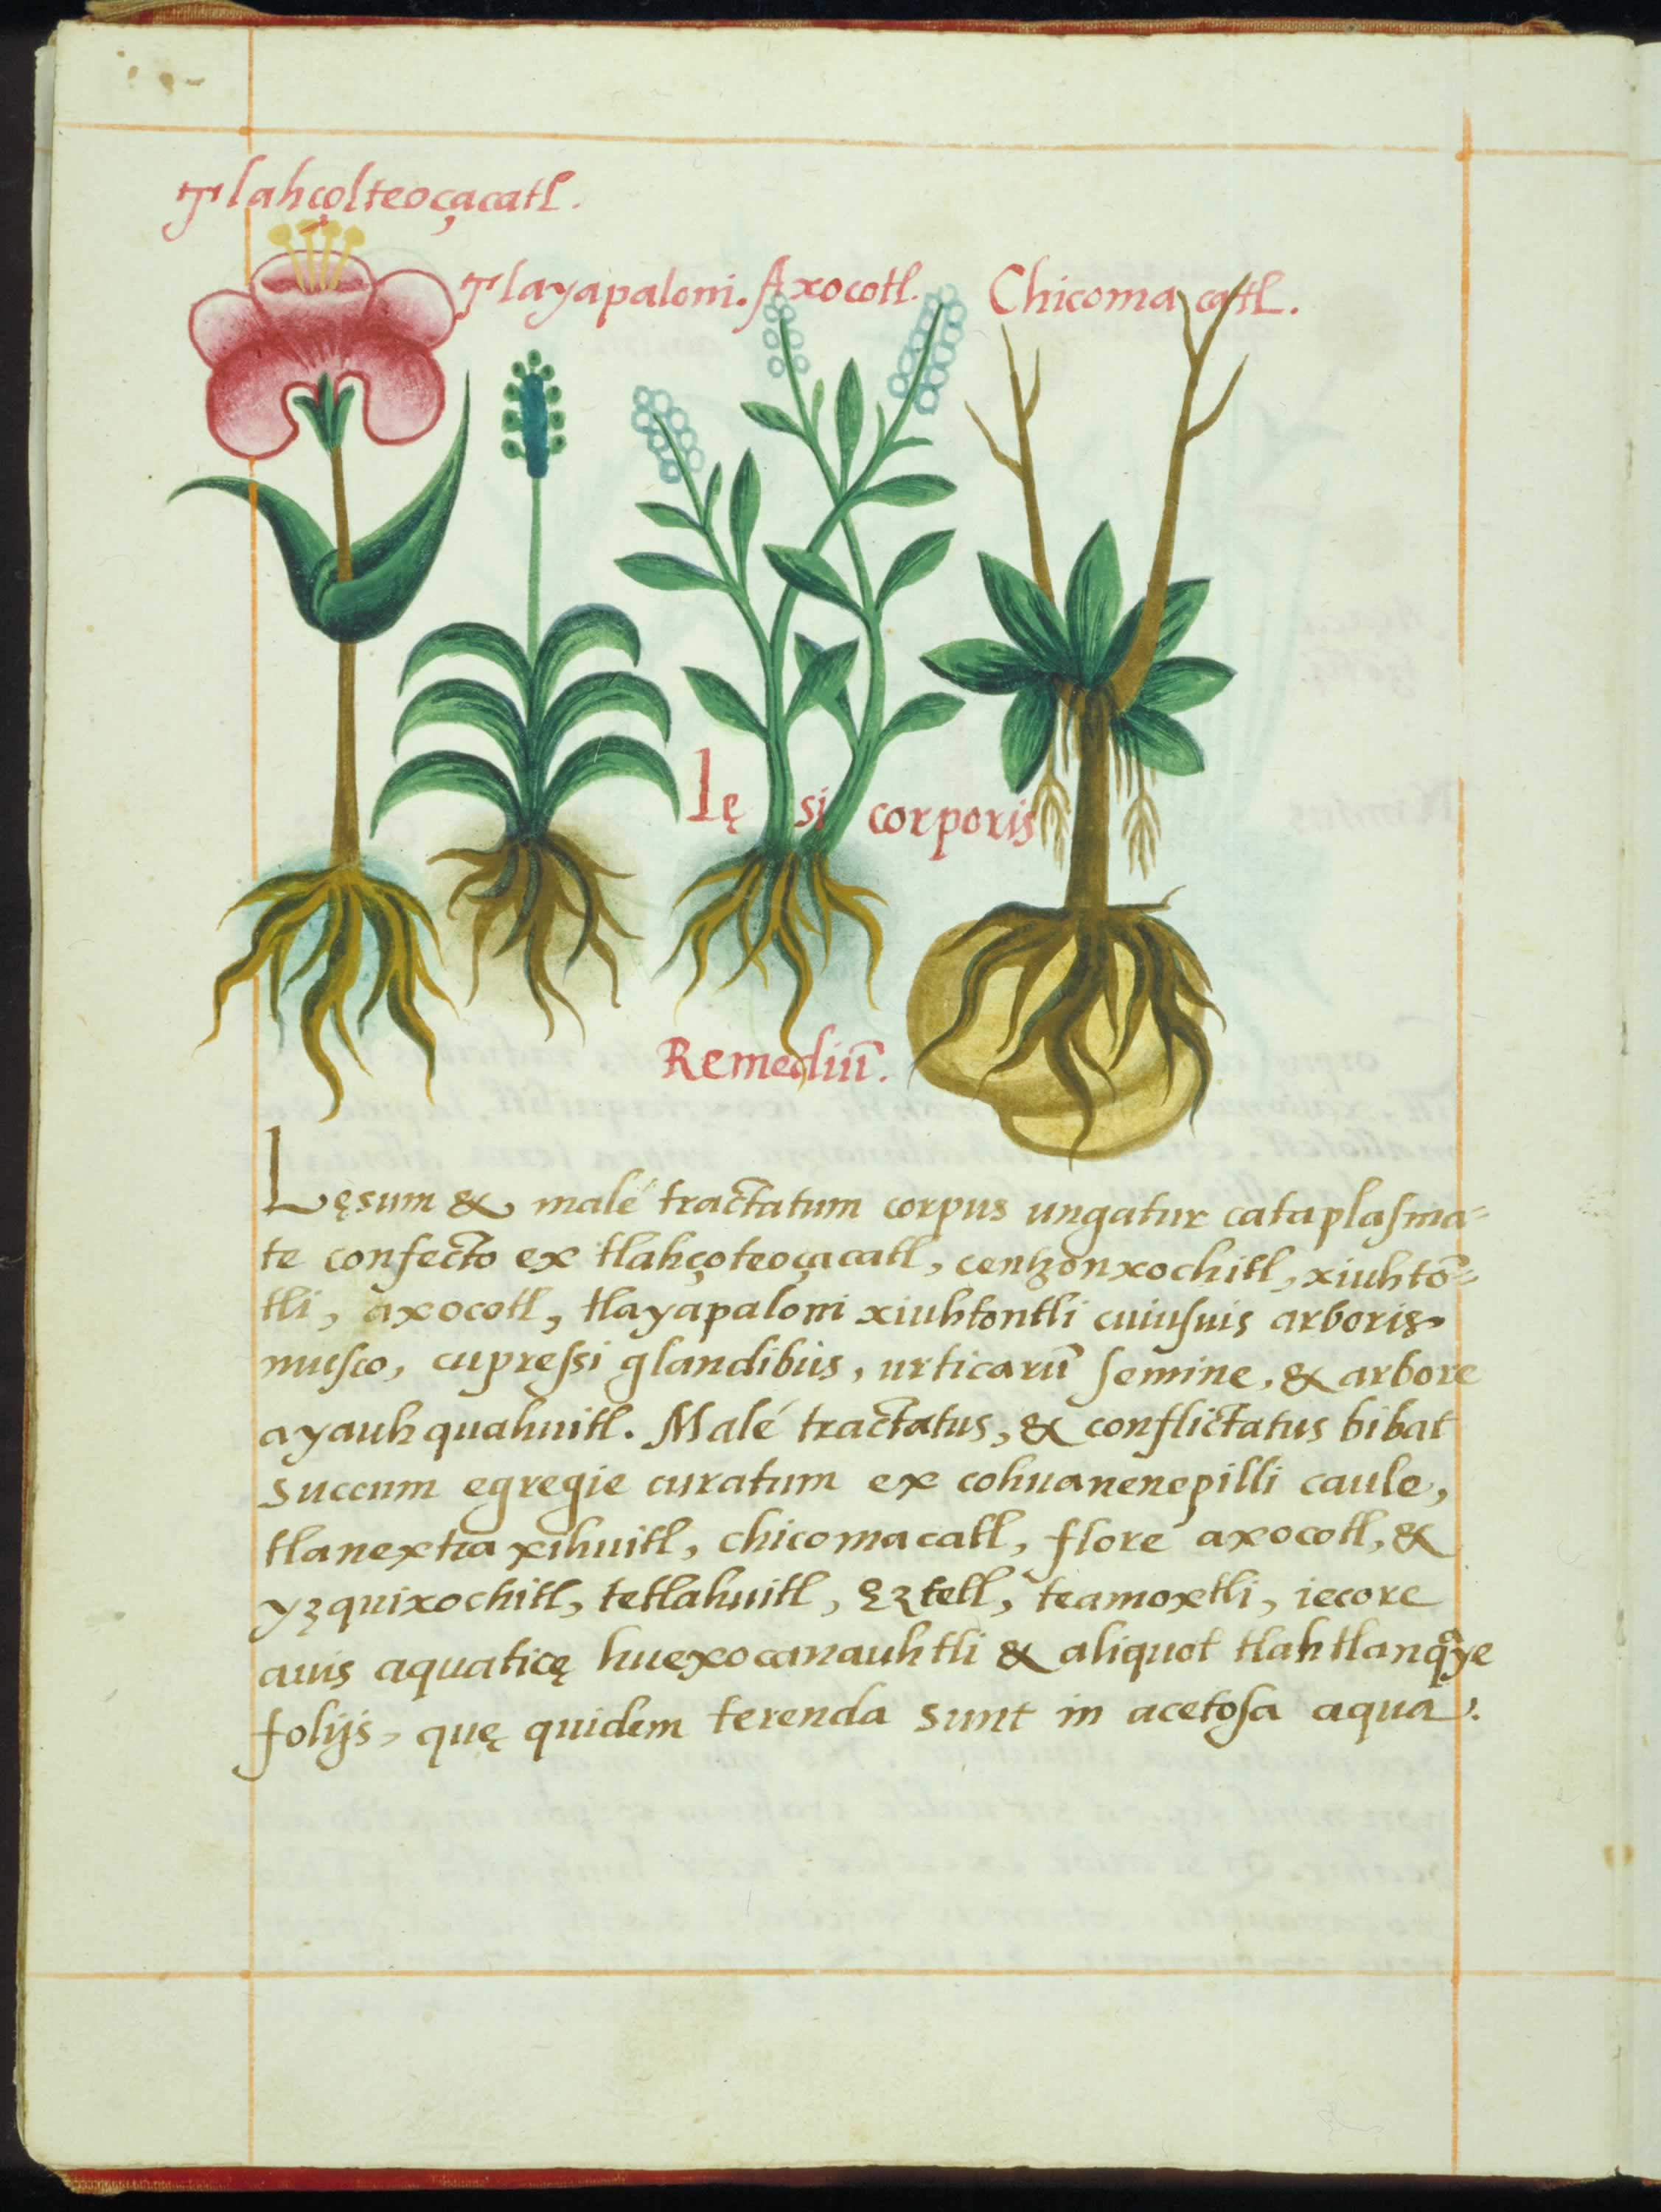 Tlahçolteoçacatl.
Tlayapaloni. Axocotl. Chicomacatl.
Lęsi corporis
Remediũ.
Lęsum & malé tractatum corpus ungatur cataplaſma-
te confecto ex tlahçoteoçacatl, centzonxochitl, xiuhtõ-
tli, axocotl, tlayapaloni xiuhtontli cuiuſuis arboris
muſco, cupreſsi glandibus, urticarũ ſemine, & arbore
ayauhquahuitl. Malé tractatus, & conflictatus bibat
succum egregie curatum ex cohuanenepilli caule,
tlanextia xihuitl, chicomacatl, flore axocotl, &
yzquixochitl, tetlahuitl, Eztetl, teamoxtli, iecore
auis aquaticę huexocanauhtli & aliquot tlahtlanqᵃye
folijs, quę quidem terenda sunt in acetoſa aqua.